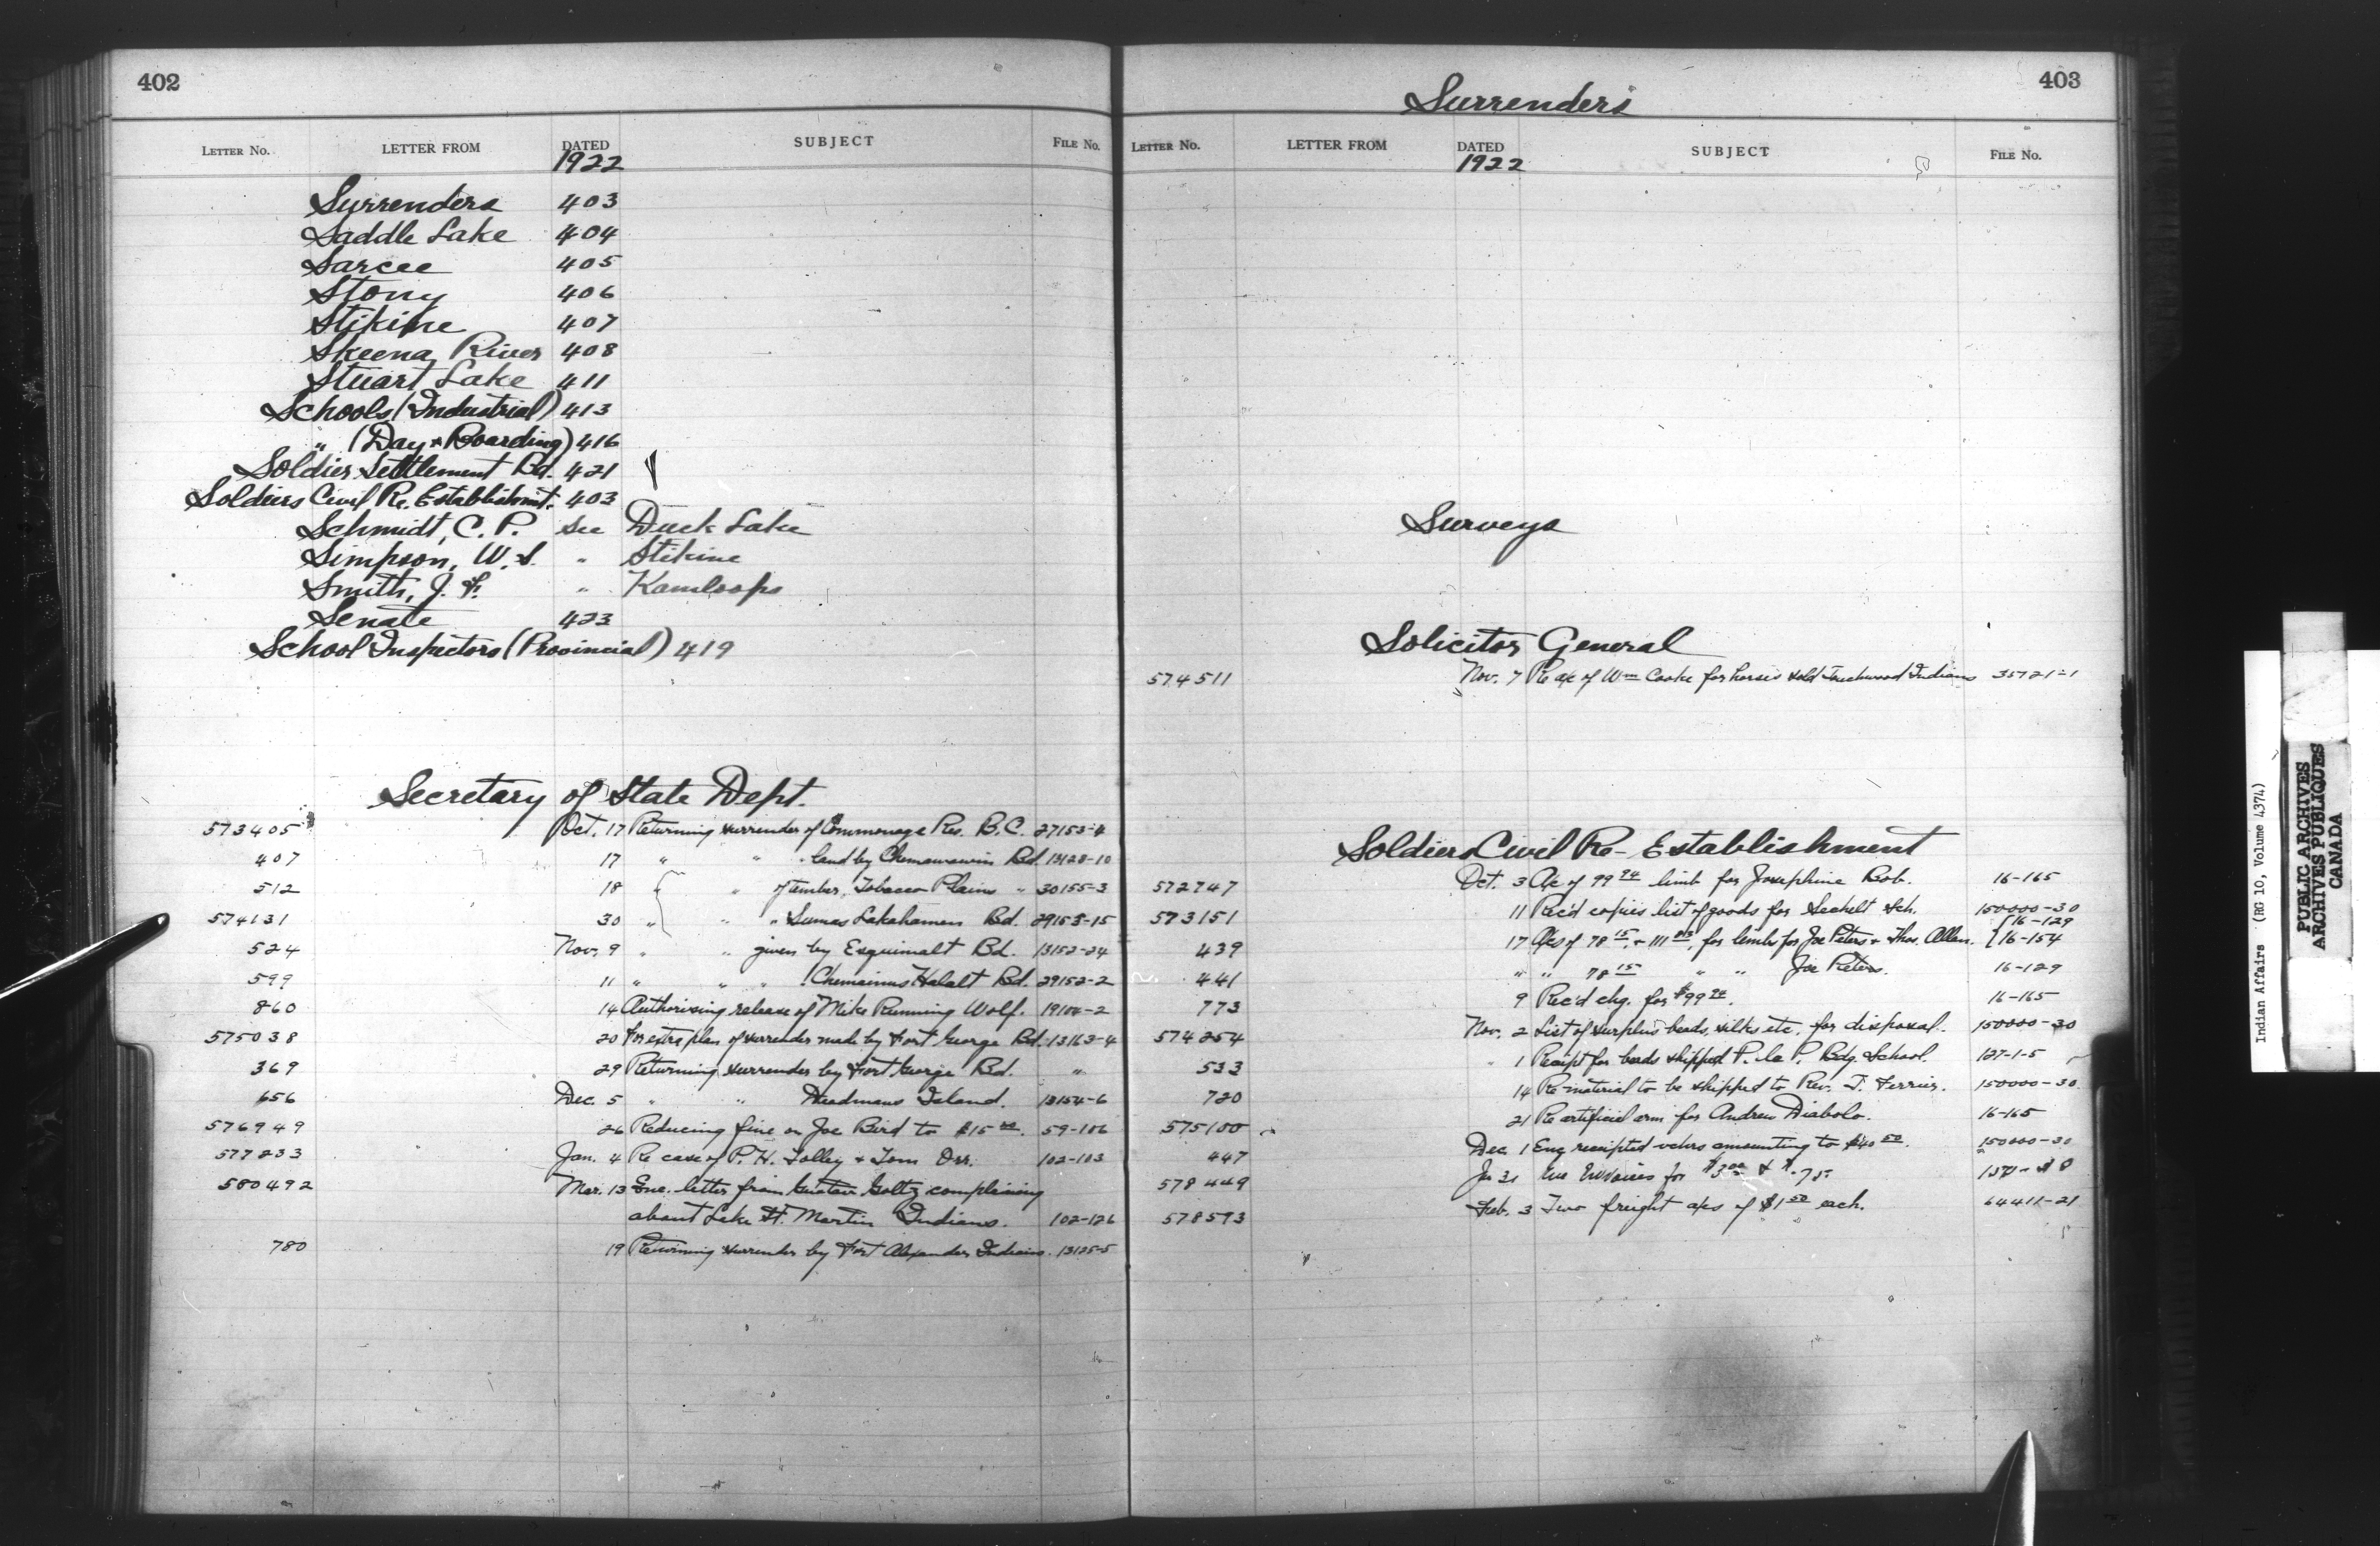 402
LETTER No. LETTER FROM DATED SUBJECT FILE No.
1922
Surrenders 403
Saddle Lake 404
Sarcee 405
Stony 406
Stikine 407
Skeena River 408
Stuart Lake 411
Schools (Industrial) 413
" (Day & Boarding) 416
Soldier Settlement Bd. 421
Soldiers Civil Re. Establishmt. 403
Schmidt, C. P. see Duck Lake
Simpson, W. S. " Stikine
Smith, J. F. " Kamloops
Senate 423
School Inspectors (Provincial) 419
Secretary of State Dept.
573405 Oct. 17 Returning surrender of Commonage Res. B.C. 27153-4
407 17 " " " land by Chemawawin Bd. 13128-10
512 18 " " of timber, Tobacco Plains " 30155-3
574131 30 " " " Sumas Lakahamen Bd. 29153-15
524 Nov. 9 " " given by Esquimalt Bd. 13152-24
599 11 " " " Chemainus Halalt Bd. 29152-2
860 14 Authorising release of Mike Running Wolf. 19104-2
575038 20 For extra plan of surrender made by Fort George Bd. 13163-4
369 29 Returning surrender by Fort George Bd. "
656 Dec. 5 " " Deadmans Island. 13154-6
576949 26 Reducing fine on Joe Bird to $15 00. 59-106
577233 Jan. 4 Re case of P. H. Tolley & Tom Orr. 102-103
580492 Mar. 13 Enc. letter from Gustav Goltz complaining
about Lake St. Martin Indians. 102-126
780 19 Returning surrender by Fort Alexander Indians. 13125-5
403
Surrenders
LETTER No. LETTER FROM DATED SUBJECT FILE No.
1922
Surveys
Solicitor General
574511 Nov. 7 Re a/c of Wm Cooke for horses sold Touchwood Indians 35721-1
Soldiers Civil Re-Establishment
572747 Oct. 3 A/c of 99 94 limb for Josephine Bob. 16-165
573151 11 Rec'd copies list of goods for Sechelt Sch. 150000-30
439 17 A/cs of 78 15 & 111 for limbs for Joe Peters & Thos. Allan. {16-129
{16-154
441 " " 78 15 " " Joe Peters. 16-129
773 9 Rec'd chq. for $99 94. 16-165
574254 Nov. 2 List of surplus beads, silks etc. for disposal. 150000-30
533 " 1 Receipt for beads shipped P. la P. Bdg. School. 127-1-5
720 14 Re material to be shipped to Rev. T. Ferrier. 150000-30
575100 21 Re artificial arm for Andrew Diabolo. 16-165
447 Dec. 1 Enc receipted vchrs amounting to $40 50. 150000-30
578449 Ja 31 Enc Invoices for $3 00 & $.75
578593 Feb. 3 Two freight a/cs of $1 50 each. 64411-21
Indian Affairs (RG 10, Volume 4374)
PUBLIC ARCHIVES
ARCHIVES PUBLIQUES
CANADA